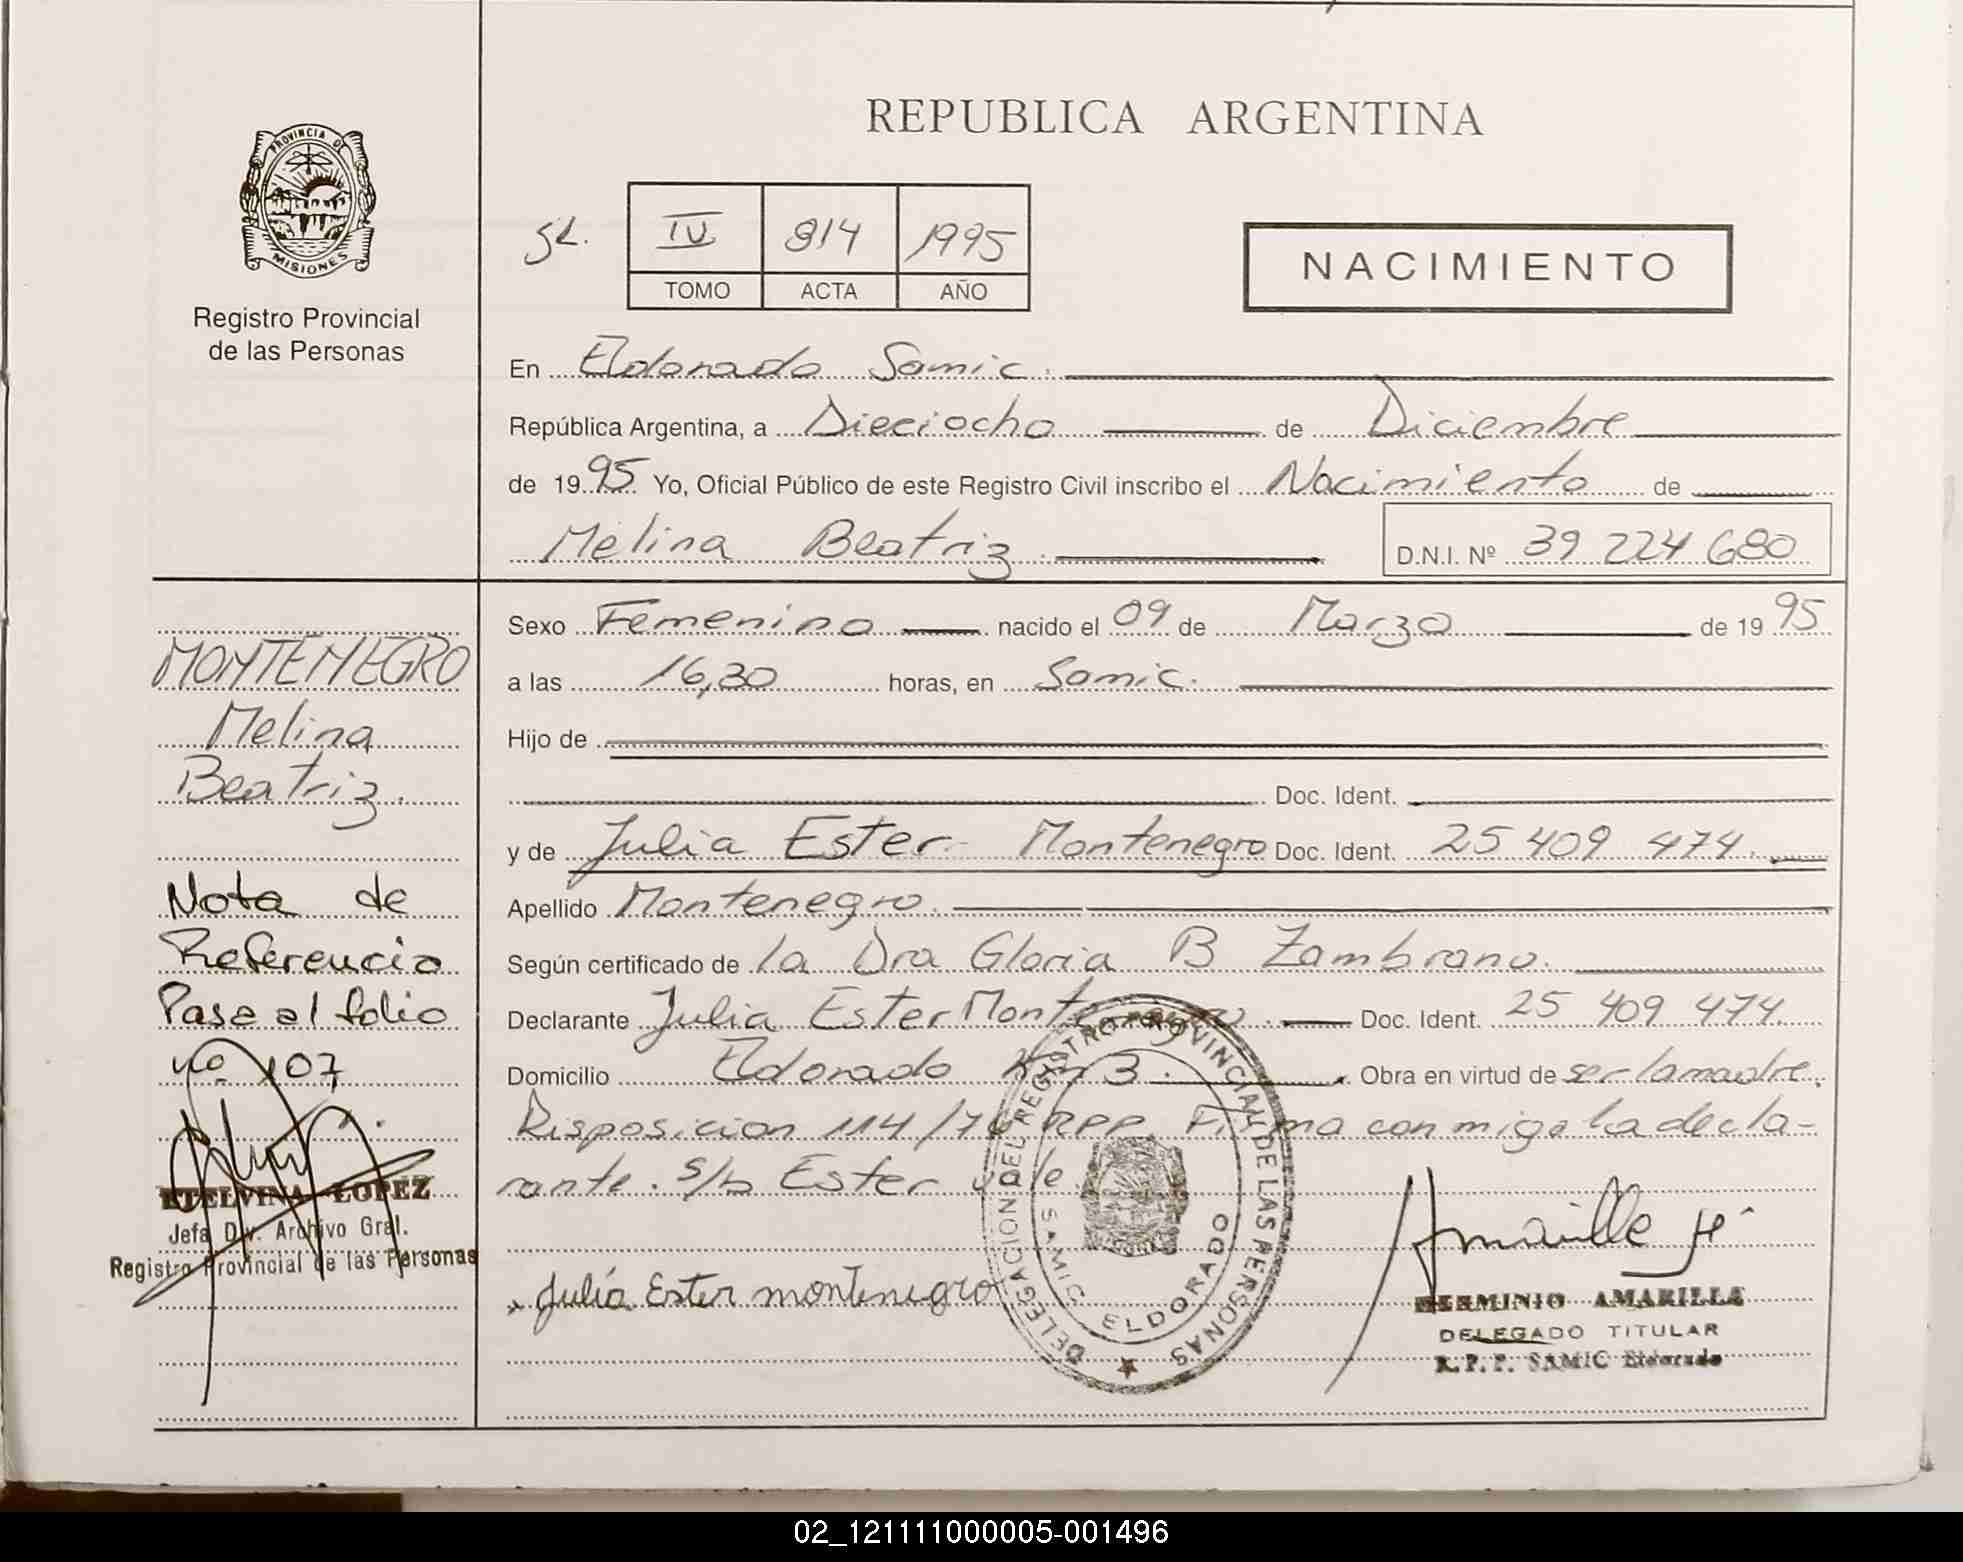 REPUBLICA ARGENTINA
PROVINCIA DE
MISIONES
Registro Provincial
de las Personas
IV 814 1995
TOMO ACTA AÑO
NACIMIENTO
En Eldorado Samic.
República Argentina, a Dieciocho de Diciembre
de 1995 Yo, Oficial Público de este Registro Civil inscribo el Nacimiento de
Melina Beatriz. D.N.I. Nº 39 224 680
Sexo Femenino nacido el 09 de Marzo de 1995
a las 16,30 horas, en Samic.
Hijo de
Doc. Ident.
y de Julia Ester Montenegro Doc. Ident. 25 409 474.
Apellido Montenegro.
Según certificado de la Dra Gloria B Zambrano.
Declarante Julia Ester Montenegro. Doc. Ident. 25 409 474.
Domicilio Eldorado Km 3. Obra en virtud de ser la madre.
Disposicion 114/76 RPP. Firma conmigo la decla-
rante. S/b Ester vale
Julia Ester montenegro
MONTENEGRO
Melina
Beatriz.
Nota de
Referencia
Pase al folio
nº 107
ETELVINA LOPEZ
Jefa Div. Archivo Gral.
Registro Provincial de las Personas
DELEGACION DEL REGISTRO PROVINCIAL DE LAS PERSONAS
SAMIC ELDORADO
Amarilla H
HERMINIO AMARILLA
DELEGADO TITULAR
R.P.P. SAMIC Eldorado
02_121111000005-001496